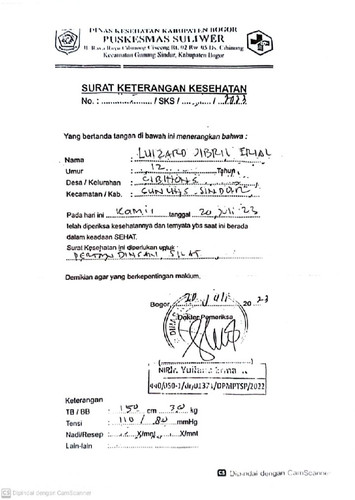 DINAS KESEHATAN KABUPATEN BOGOR
PUSKESMAS SULIWER
Jl. Raya Cibinong Ciseeng Rt. 02 Rw 05 Ds. Cibinong
Kecamatan Gunung Sindur, Kabupaten Bogor
SURAT KETERANGAN KESEHATAN
No. : / SKS / / 2023
Yang bertanda tangan di bawah ini menerangkan bahwa :
Nama :
Umur : 12 Tahun
Desa / Kelurahan : CIBINONG
Kecamatan / Kab. : GUNUNG SINDUR
Pada hari ini Kamis tanggal 20 Juli 23
telah diperiksa kesehatannya dan ternyata ybs saat ini berada
dalam keadaan SEHAT.
Surat Kesehatan ini diperlukan untuk
SILAT
Demikian agar yang berkepentingan maklum.
Bogor, 20 Juli 2023
Dokter Pemeriksa
Keterangan
TB / BB : 150 cm 30 kg
Tensi : 110 / 80 mmHg
Nadi/Resep : X/mnt X/mnt
Lain-lain :
CS Dipindai dengan CamScanner
CS Dipindai dengan CamScanner